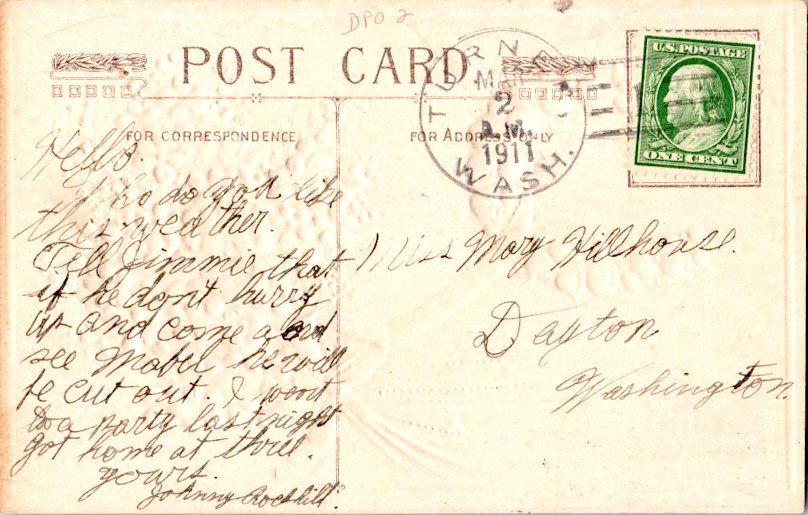 DPO 2
POST CARD
TURNER
MAR
2
A.M.
1911
WASH.
U.S. POSTAGE
ONE CENT
FOR CORRESPONDENCE
FOR ADDRESS ONLY
Hello.
who do you like
this weather.
Tell Jimmie that
if he don't hurry
up and come and
see Mabel he will
be cut out. I went
to a party last night
got home at three.
yours.
Johnny
Miss Mary Hillhouse.
Dayton
Washington.